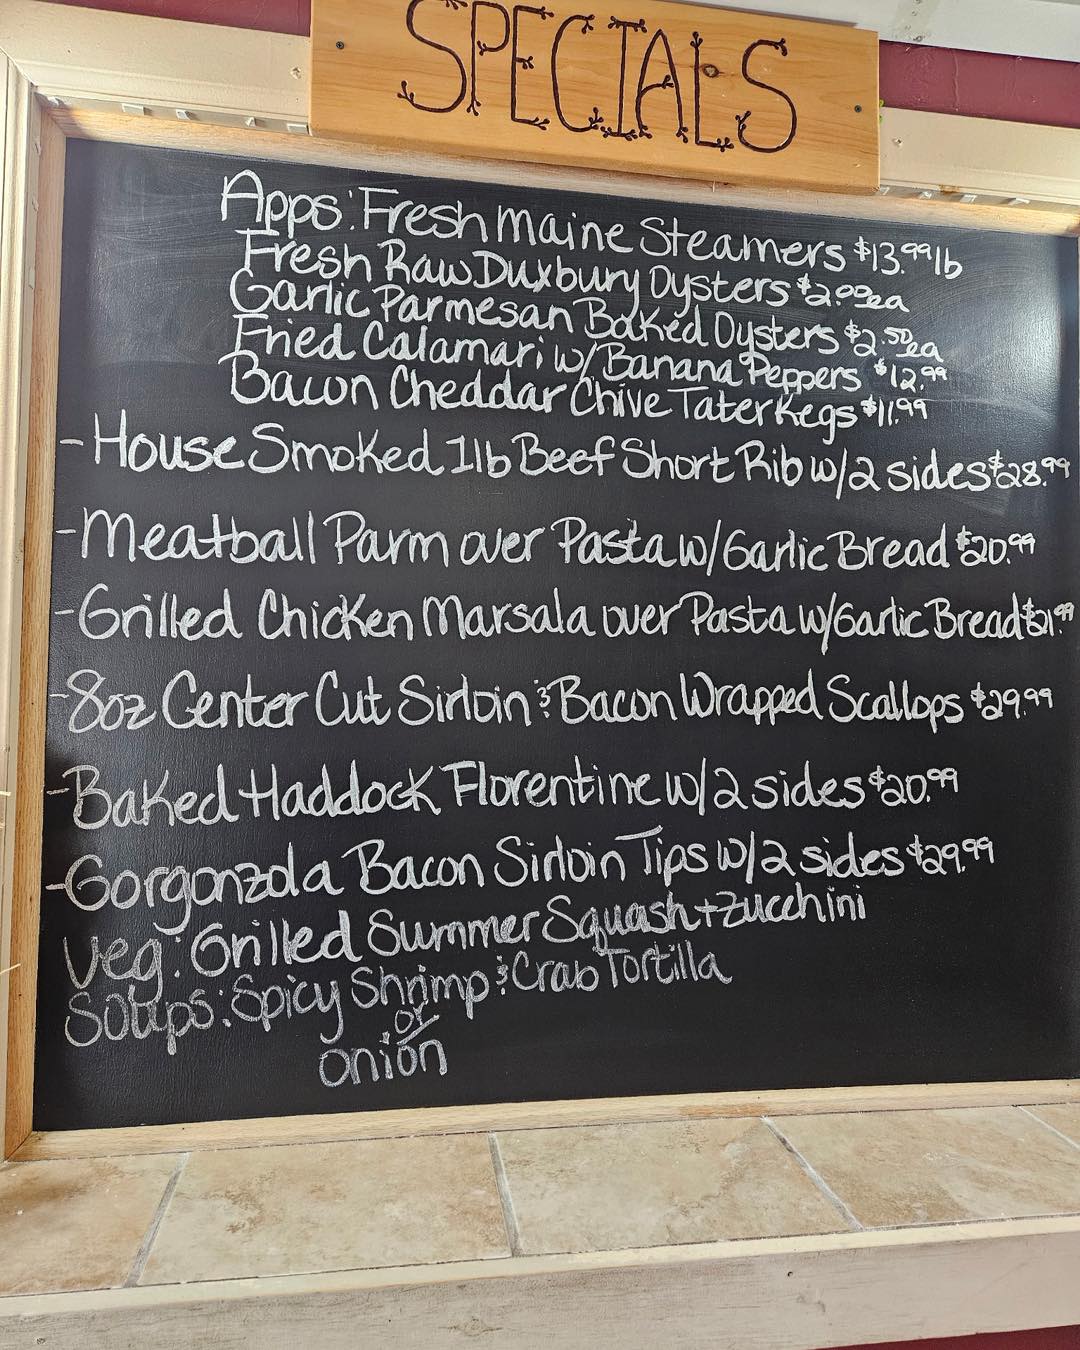 SPECIALS
Apps: Fresh Maine Steamers $13.99 lb
Fresh Raw Duxbury Oysters $2.00 ea
Garlic Parmesan Baked Oysters $2.50 ea
Fried Calamari w/ Banana Peppers $12.99
Bacon Cheddar Chive Tater Kegs $11.99
- House Smoked 1lb Beef Short Rib w/2 sides $28.99
- Meatball Parm over Pasta w/ Garlic Bread $20.99
- Grilled Chicken Marsala over Pasta w/ Garlic Bread $21.99
- 8oz Center Cut Sirloin & Bacon Wrapped Scallops $29.99
- Baked Haddock Florentine w/2 sides $20.99
- Gorgonzola Bacon Sirloin Tips w/2 sides $29.99
Veg: Grilled Summer Squash + Zucchini
Soups: Spicy Shrimp & Crab Tortilla
or
onion